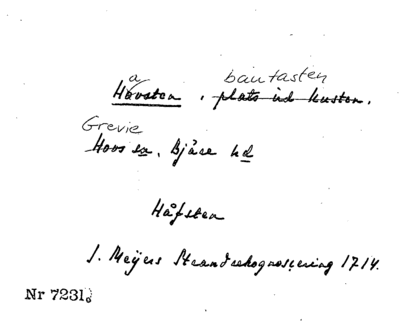 a bautasten
Hovsten, plats vid kusten.
Grevie
Hovs sn, Bjäre hd
Håfsten
J. Meijers Strandrekognoscering 1714.
Nr 7231.